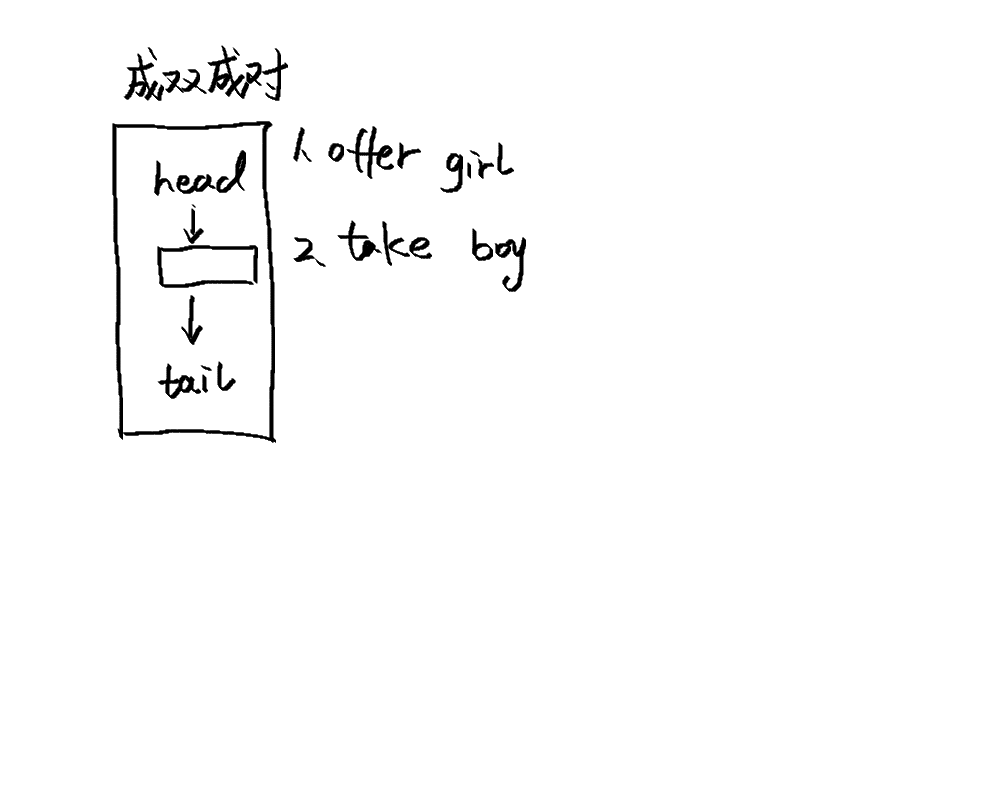 成双成对
head
tail
1. offer girl
2. take boy